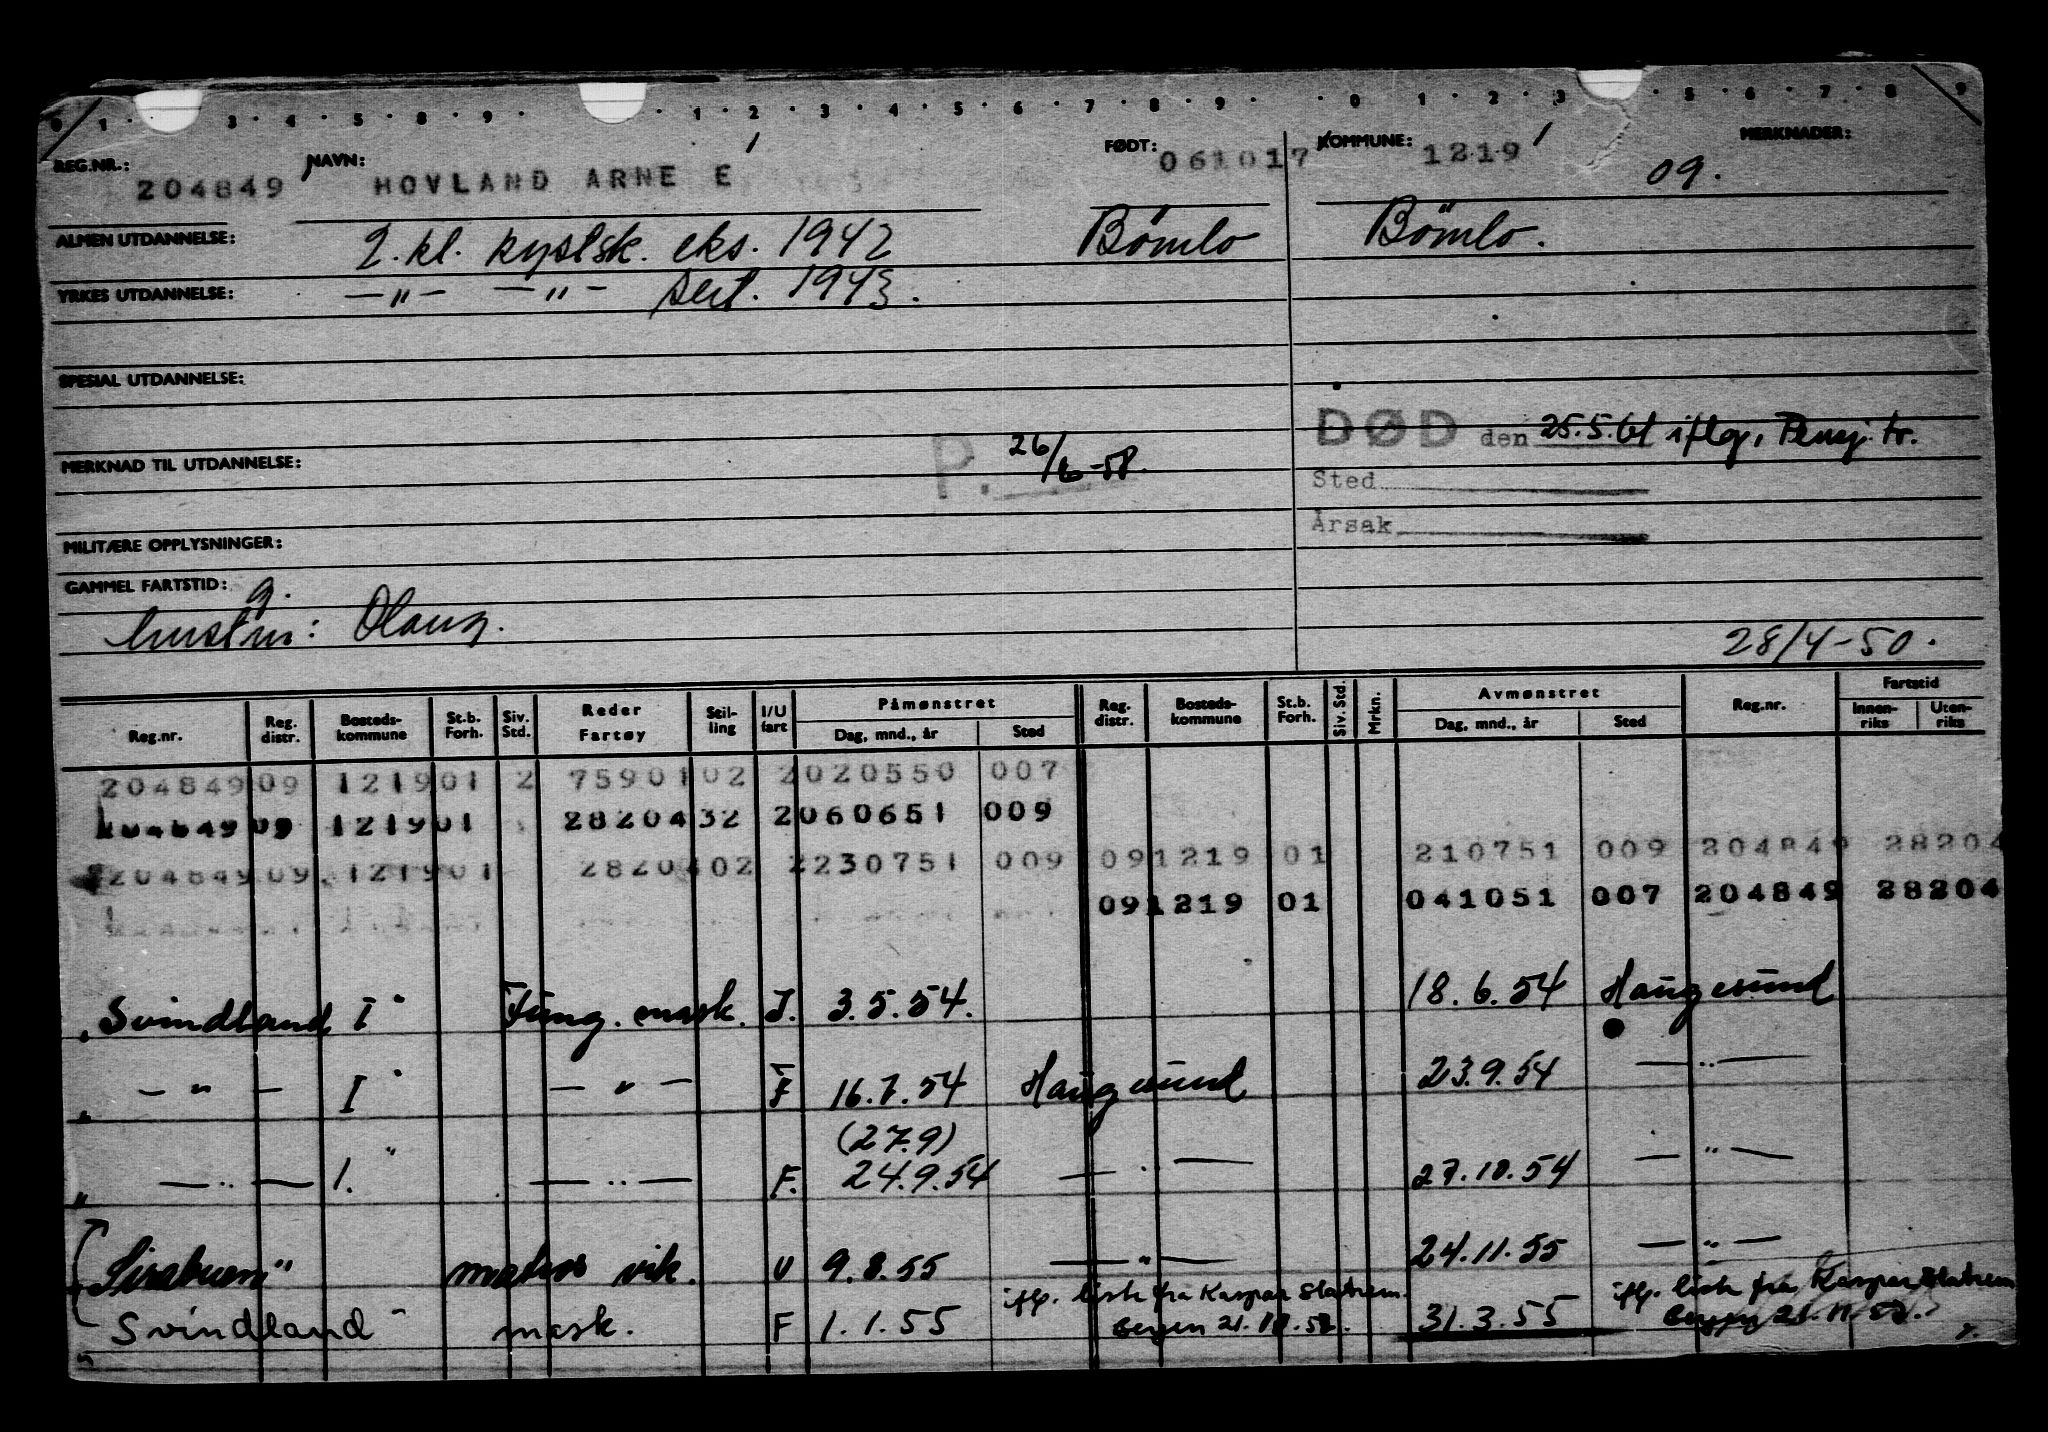 0 1 3 4 5 8 9 1 2 3 4 5 6 7 8 9 0 1 2 3 5 6 7 8 9
REG.NR.: 204849 NAVN: HOVLAND ARNE E FØDT: 061017 KOMMUNE: 1219 MERKNADER: 09.
ALMEN UTDANNELSE: 2. kl. kystsk. eks. 1942 Bömlo Bömlo.
YRKES UTDANNELSE: —"— —"— sert. 1943.
SPESIAL UTDANNELSE:
DØD den 25.5.61 iflg. Pensj. tr.
MERKNAD TIL UTDANNELSE: P. 26/6-58.
Sted
Årsak
MILITÆRE OPPLYSNINGER:
GAMMEL FARTSTID: g.
hustru: Olaug.
28/4-50.
Reg.nr. Reg. distr. Bosteds-kommune St.b. Forh. Siv. Std. Reder Fartøy Stil-ling I/U fart Påmønstret Dag, mnd., år Sted Reg. distr. Bosteds-kommune St.b. Forh. Siv. Std. Mrkn. Avmønstret Dag, mnd., år Sted Reg.nr. Fartstid Innen-riks Uten-riks
204849 09 1219 01 2 75901 02 2 020550 007
204849 09 1219 01 28204 32 2 060651 009
204849 09 1219 01 28204 02 2 230751 009 09 1219 01 210751 009 204849 28204
09 1219 01 041051 007 204849 28204
"Svindland I" Fung. mask. I. 3.5.54. 18.6.54 Haugesund
" —"— I" —"— F 16.7.54 Haugesund 23.9.54 —"—
(27.9)
" —"— I." —"— F. 24.9.54 —"— 27.10.54 —"—
"Sirabuen" matros vik. U 9.8.55 —"— 24.11.55 —"—
"Svindland" mask. F 1.1.55 iflg. liste fra Kaspar Statrem. 31.3.55 iflg. liste fra Kaspar Statrem
Bergen 21.11.58. Bergen 21.11.58.